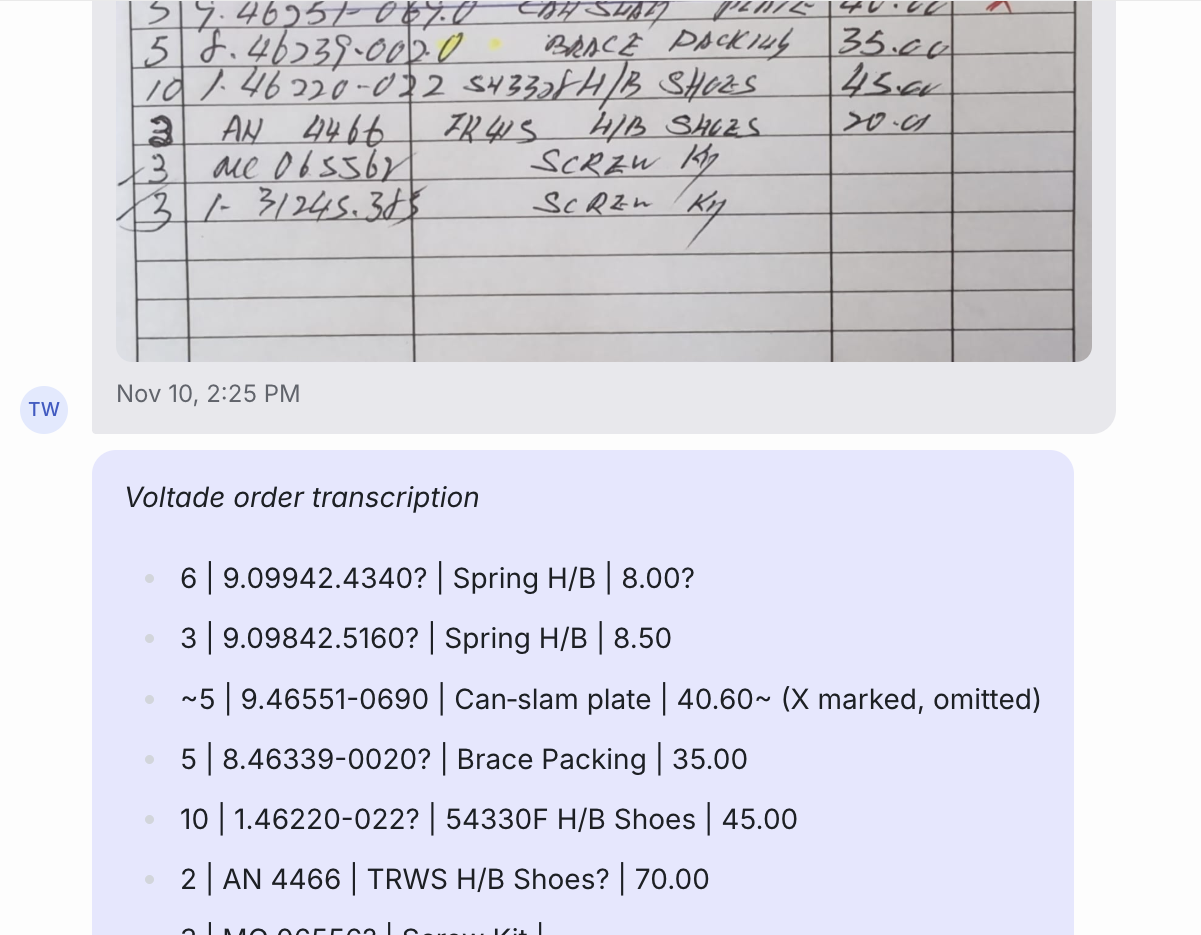 5 8.46239-0020 BRACE PACKING 35.00
10 1-46220-022 H/B SHOES 45.00
AN 4466 H/B SHOES 20.00
3 MC 065562 SCREW
3 1-31245.385 SCREW
Nov 10, 2:25 PM
TW
Voltade order transcription
6 | 9.09942.4340? | Spring H/B | 8.00?
3 | 9.09842.5160? | Spring H/B | 8.50
~5 | 9.46551-0690 | Can-slam plate | 40.60~ (X marked, omitted)
5 | 8.46339-0020? | Brace Packing | 35.00
10 | 1.46220-022? | 54330F H/B Shoes | 45.00
2 | AN 4466 | TRWS H/B Shoes? | 70.00